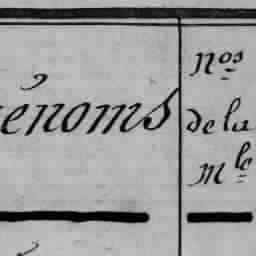 énoms
Nos
de la
Mle